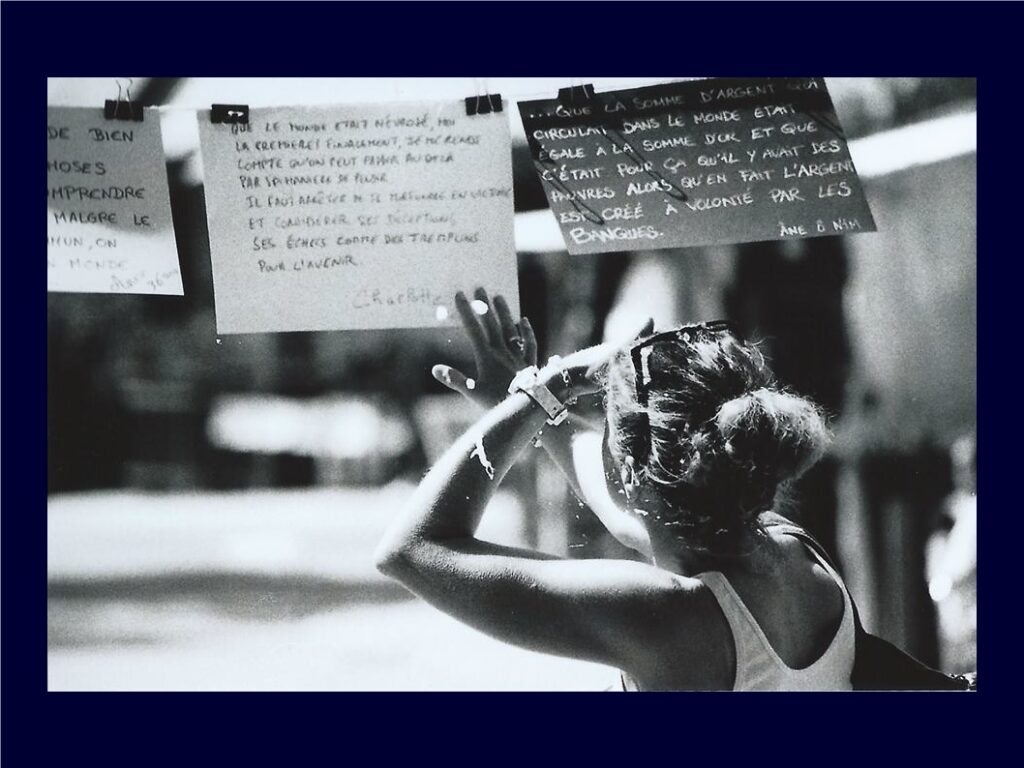 DE BIEN
HOSES
OMPRENDRE
MALGRE LE
MUN, ON
N MONDE
QUE LE MONDE ETAIT NÉVROSÉ, MOI
LA PREMIERE! FINALEMENT, JE ME RENDS
COMPTE QU'ON PEUT PASSER AU DELA
PAR
IL FAUT ARRÊTER DE SE MORFONDRE EN VICTIME
ET CONSIDÉRER SES DÉCEPTIONS
SES ÉCHECS COMME DES TREMPLINS
POUR L'AVENIR.
Charlotte
...QUE LA SOMME D'ARGENT QUI
CIRCULAIT DANS LE MONDE ETAIT
EGALE A LA SOMME D'OR ET QUE
C'ÉTAIT POUR ÇA QU'IL Y AVAIT DES
PAUVRES ALORS QU'EN FAIT L'ARGENT
EST CRÉÉ À VOLONTÉ PAR LES
BANQUES.
ÂNE O NYM